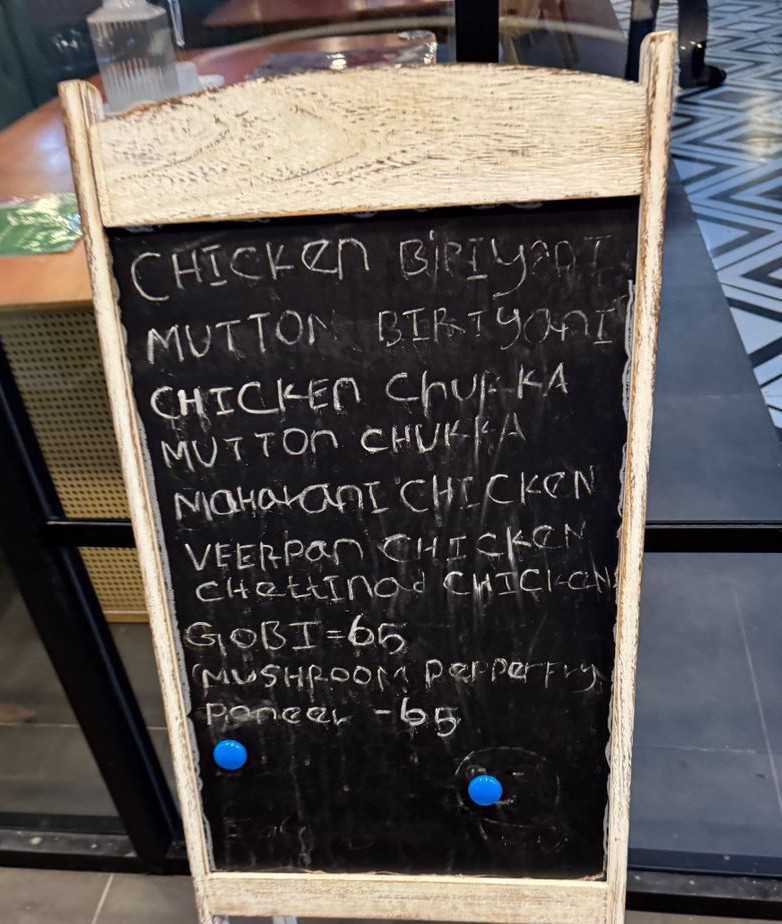 CHICKEN BIRIYANI
MUTTON BIRIYANI
CHICKEN CHUKKA
MUTTON CHUKKA
MAHARANI CHICKEN
VEERPAN CHICKEN
CHETTINAD CHICKEN
GOBI=65
MUSHROOM PEPPERFRY
PANEER -65